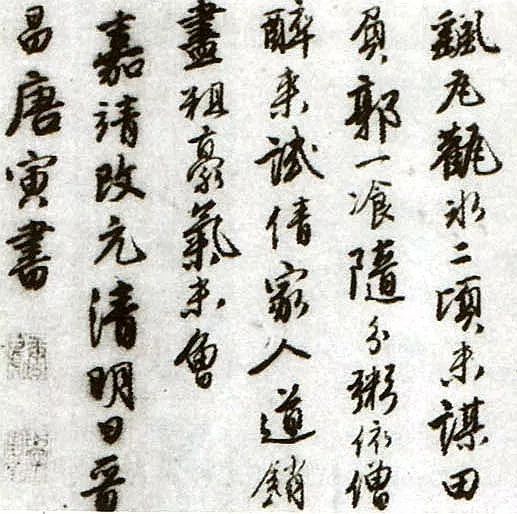 飄瓦甑氷二頃未謀田
負郭一飡隨分粥依僧
醉来試倩家人道銷
盡粗豪氣未曾
嘉靖改元清明日晉
昌唐寅書